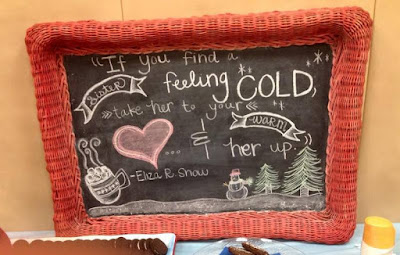 "If you find a
Sister feeling COLD,
take her to your
♥... & warm
her up.
-Eliza R. Snow